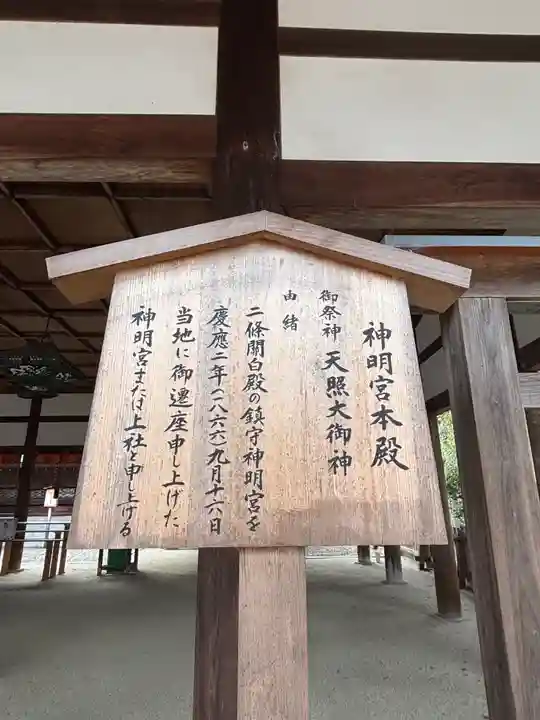 神明宮本殿
御祭神 天照大御神
由緒
二條關白殿の鎮守神明宮を
慶應二年(一八六六)九月十六日
当地に御遷座申し上げた
神明宮または上社と申し上げる